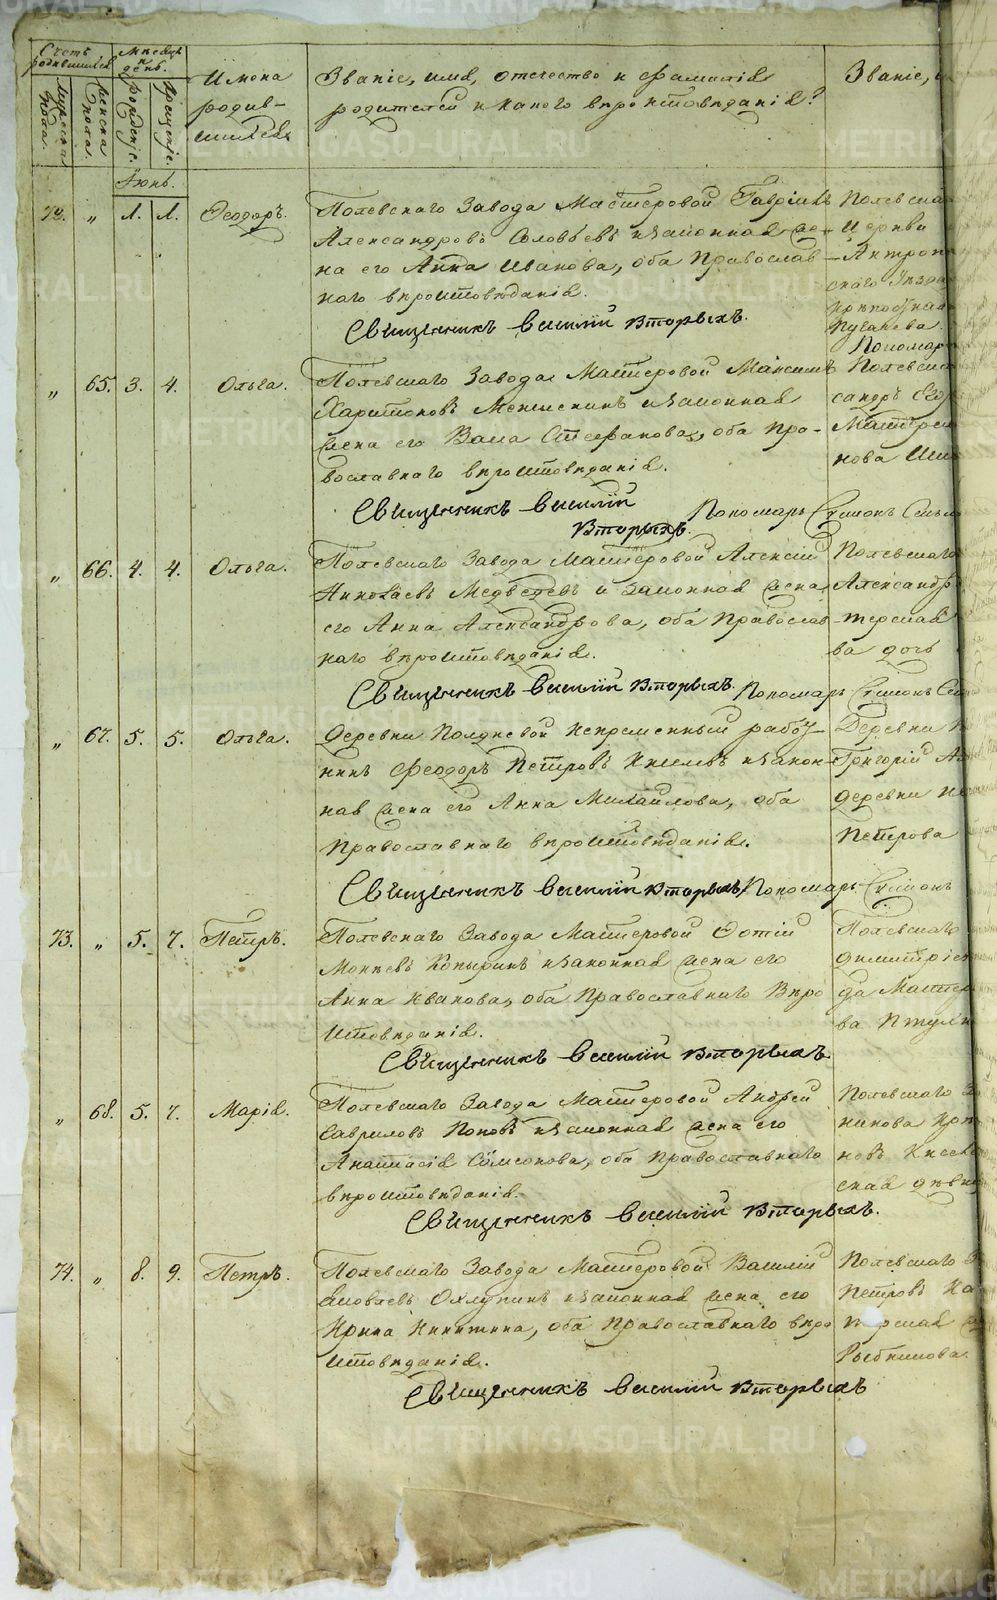 Счетъ родившихся
Мѣсяцъ и день.
Имена родив-шихся
Званіе, имя, отечество и фамилія
родителей и какого вѣроисповѣданія?
Званіе, и
Мужеска пола.
Женска пола.
рожденіе.
крещеніе.
Іюнь.
72. " 1. 1. Ѳеодоръ.
Полевскаго Завода Мастеровой Гавріилъ
Александровъ Соловьевъ и законная же-
на его Анна Иванова, оба Православ-
наго вѣроисповѣданія.
Священникъ Василій Вторыхъ.
Полевска
Церкви
Антроп
скаго Уѣзда
Пономар
" 65. 3. 4. Ольга.
Полевскаго Завода Мастеровой Максимъ
Харитоновъ и законная
жена его Васса Стефанова, оба Пра-
вославнаго вѣроисповѣданія.
Священникъ Василій
Вторыхъ.
Пономарь Стефанъ
Полевска
сандръ Его
Мастерск
нова
" 66. 4. 4. Ольга.
Полевскаго Завода Мастеровой Алексій
Николаевъ Медведевъ и законная жена
его Анна Александрова, оба Православ
наго вѣроисповѣданія.
Священникъ Василій Вторыхъ.
Пономарь
Полевскаго
Александр
терская
ва дочь
" 67. 5. 5. Ольга.
Деревни Полдневой Непременный работ-
никъ Феодоръ Петровъ и закон-
ная жена его Анна Михайлова, оба
Православнаго вѣроисповѣданія.
Священникъ Василій Вторыхъ.
Пономарь
Деревни П
Григорій А
деревни
Петрова
73. " 5. 7. Петръ.
Полевскаго Завода Мастеровой Фотій
Мокіевъ Копыринъ и законная жена его
Анна Иванова, оба Православнаго Вѣро
исповѣданія.
Священникъ Василій Вторыхъ.
Полевскаго
Димитріе
да Мастер
ва
" 68. 5. 7. Марія.
Полевскаго Завода Мастеровой Андрей
Гавриловъ Поповъ и законная жена его
Анастасія Самсонова, оба Православнаго
вѣроисповѣданія.
Священникъ Василій Вторыхъ.
Полевскаго З
никова
новъ
ская дѣви
74. " 8. 9. Петръ.
Полевскаго Завода Мастеровой Василій
Яковлевъ Охлупинъ и законная жена его
Ирина Никитина, оба Православнаго вѣро
исповѣданія.
Священникъ Василій Вторыхъ
Полевскаго З
Петровъ Ка
терская
METRIKI.GASO-URAL.RU